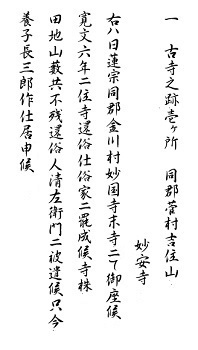 一　古寺之跡壱ヶ所　同郡菅村吉住山
妙安寺
右ハ日蓮宗同郡金川村妙国寺末寺ニて御座候
寛文六年ニ住寺還俗仕俗家ニ罷成候寺株
田地山藪共不残還俗人清左衛門ニ被遣候只今
養子長三郎作仕居申候